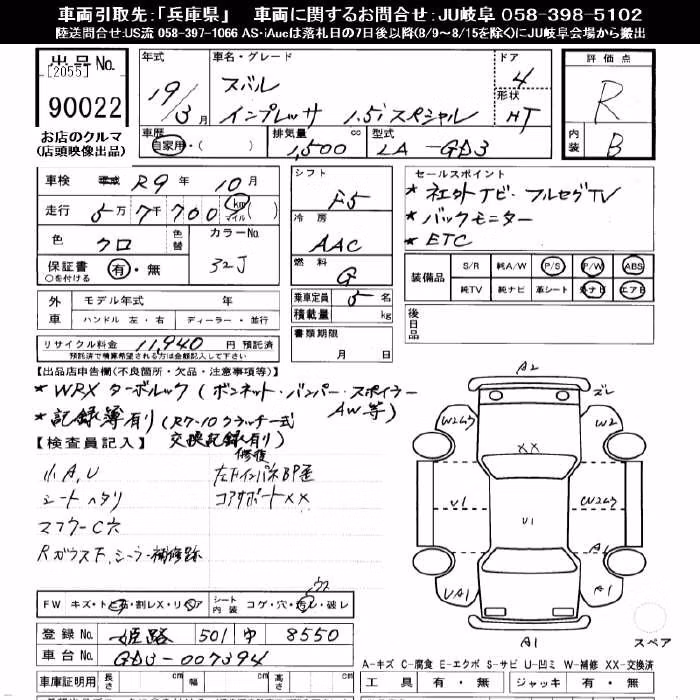 車両引取先:「兵庫県」 車両に関するお問合せ:JU岐阜 058-398-5102
陸送問合せ:US流 058-397-1066 AS・iAucは落札日の7日後以降(8/9～8/15を除く)にJU岐阜会場から搬出
出品No.
[2055]
90022
お店のクルマ
(店頭映像出品)
年式 車名・グレード ドア
19/3月 スバル 4
インプレッサ 1.5iスペシャル 形状 HT
車歴 排気量 cc 型式
自家用・( ) 1,500 LA-GD3
評価点
R
内装 B
車検 R9年 10月
走行 5万7千700 km マイル ( )
色 クロ 色替 カラーNo. 32J
保証書 ○を付ける 有・無
シフト F5
冷房 AAC
燃料 G
乗車定員 5名
積載量 kg
書類期限
月 日
セールスポイント
* 社外ナビ・フルセグTV
* バックモニター
* ETC
装備品 S/R 純A/W P/S P/W ABS
純TV 純ナビ 革シート 外ナビ エアB
後日品
外車 モデル年式 年
ハンドル 左・右 ディーラー・並行
リサイクル料金 11,940 円 預託済
預託済で精算希望される方は金額記入して下さい
【出品店申告欄(不良箇所・欠品・注意事項等)】
* WRXターボルック(ボンネット・バンパー・スポイラー
AW等)
* 記録簿有り(R7-10クラッチ一式
交換記録有り)
【検査員記入】
小A,U
シートヘタリ
マフラーC穴
Rガラス下,シーラー補修跡
修復
左ドインパネBP歪
コアサポートXX
A2
ズレ
W2
XX
U1
U1
A1
A1
UA1
A1
スペア
FW キズ・トビ石・割レX・リペア シート内装 コゲ・穴・汚レ・破レ
登録No. 姫路 501 ゆ 8550
車台No. GD3-007394
車庫証明用 長さ cm 幅 cm 高さ cm
A-キズ C-腐食 E-エクボ S-サビ U-凹ミ W-補修 XX-交換済
工具 有・無 ジャッキ 有・無